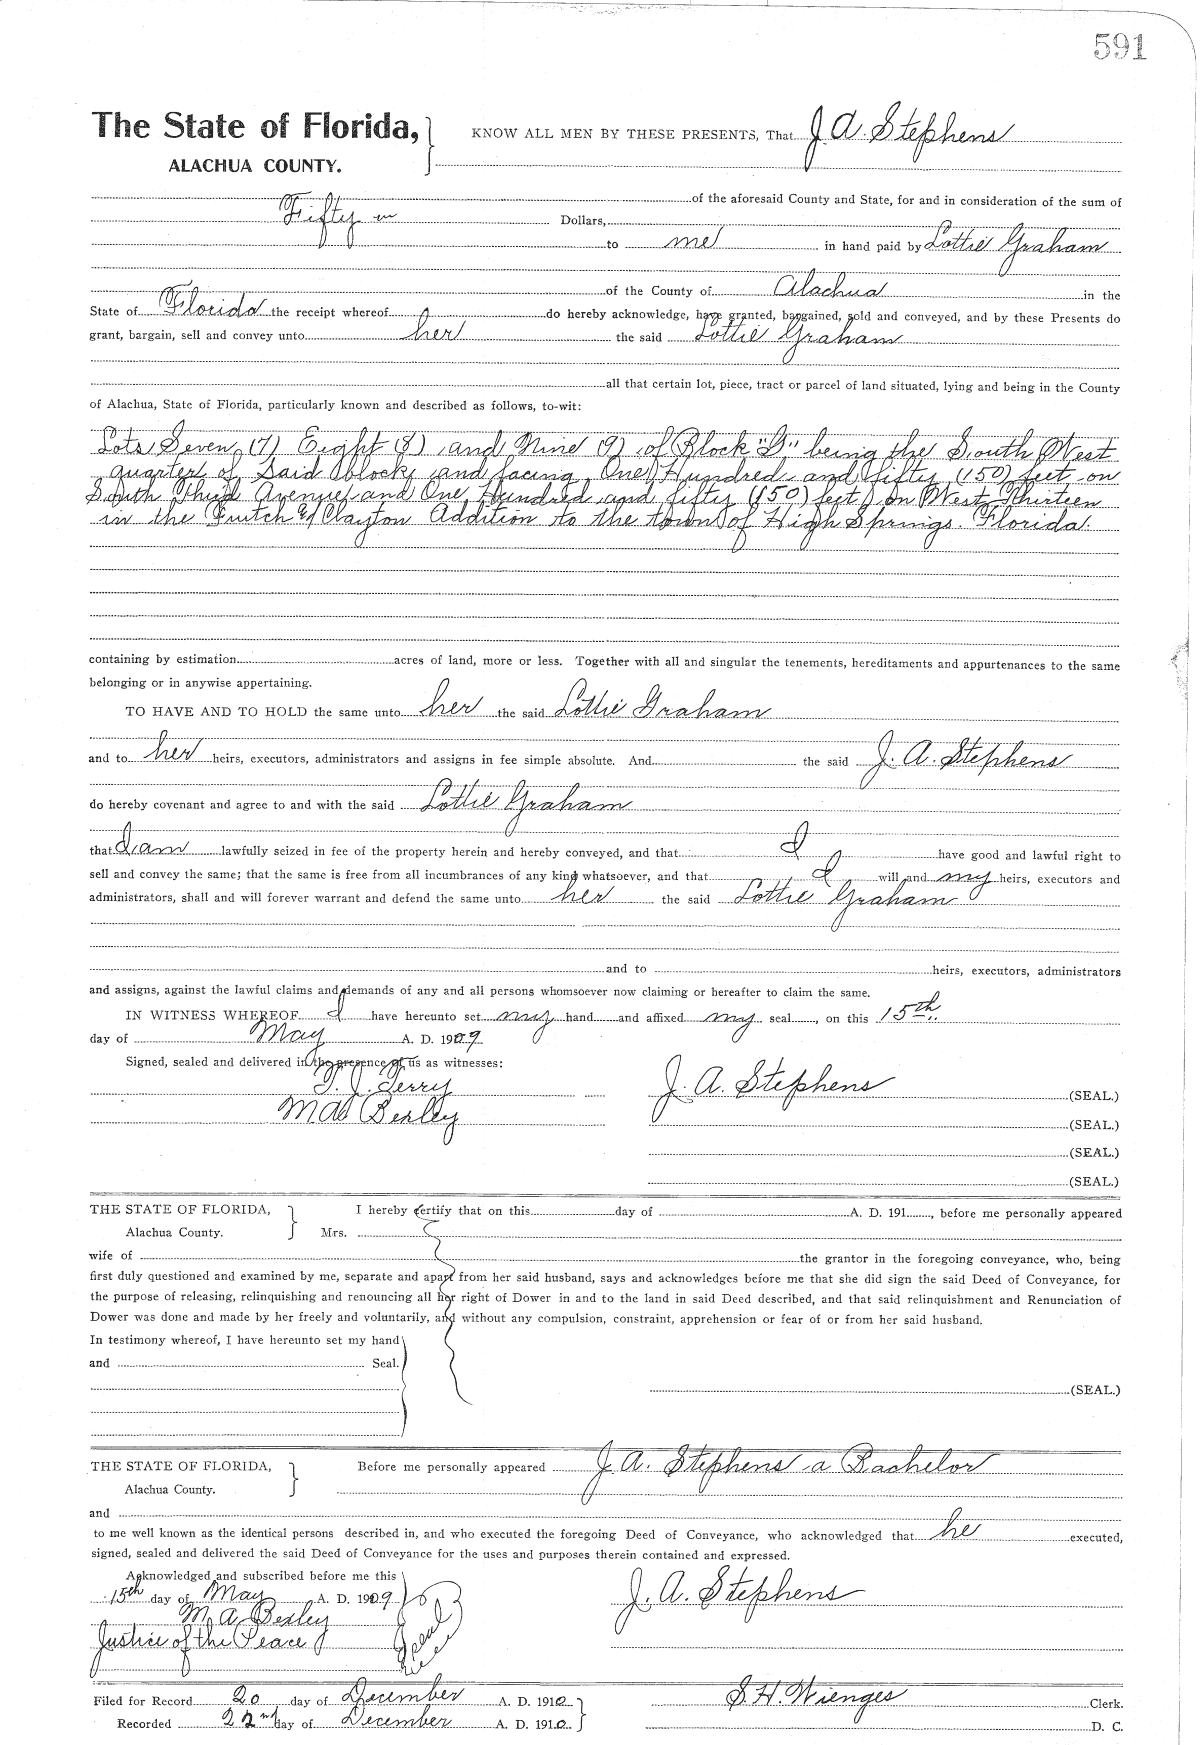 591
The State of Florida, KNOW ALL MEN BY THESE PRESENTS, That J. A. Stephens
ALACHUA COUNTY.
of the aforesaid County and State, for and in consideration of the sum of
Fifty Dollars,
to me in hand paid by Lottie Graham
of the County of Alachua in the
State of Florida the receipt whereof do hereby acknowledge, have granted, bargained, sold and conveyed, and by these Presents do
grant, bargain, sell and convey unto her the said Lottie Graham
all that certain lot, piece, tract or parcel of land situated, lying and being in the County
of Alachua, State of Florida, particularly known and described as follows, to-wit:
Lots Seven (7) Eight (8) and Nine (9) of Block "G" being the South West
quarter of Said block, and facing One Hundred and fifty (150) feet on
South Third Avenue and One Hundred and fifty (150) feet on West Thirteen
in the Futch & Clayton Addition to the town of High Springs. Florida.
containing by estimation acres of land, more or less. Together with all and singular the tenements, hereditaments and appurtenances to the same
belonging or in anywise appertaining.
TO HAVE AND TO HOLD the same unto her the said Lottie Graham
and to her heirs, executors, administrators and assigns in fee simple absolute. And the said J. A. Stephens
do hereby covenant and agree to and with the said Lottie Graham
that I am lawfully seized in fee of the property herein and hereby conveyed, and that I have good and lawful right to
sell and convey the same; that the same is free from all incumbrances of any kind whatsoever, and that I will and my heirs, executors and
administrators, shall and will forever warrant and defend the same unto her the said Lottie Graham
and to heirs, executors, administrators
and assigns, against the lawful claims and demands of any and all persons whomsoever now claiming or hereafter to claim the same.
IN WITNESS WHEREOF I have hereunto set my hand and affixed my seal, on this 15th
day of May A. D. 1909
Signed, sealed and delivered in the presence of us as witnesses:
T. J. Terry J. A. Stephens (SEAL.)
M A Bexley (SEAL.)
(SEAL.)
(SEAL.)
THE STATE OF FLORIDA, I hereby certify that on this day of A. D. 191, before me personally appeared
Alachua County. Mrs.
wife of the grantor in the foregoing conveyance, who, being
first duly questioned and examined by me, separate and apart from her said husband, says and acknowledges before me that she did sign the said Deed of Conveyance, for
the purpose of releasing, relinquishing and renouncing all her right of Dower in and to the land in said Deed described, and that said relinquishment and Renunciation of
Dower was done and made by her freely and voluntarily, and without any compulsion, constraint, apprehension or fear of or from her said husband.
In testimony whereof, I have hereunto set my hand
and Seal.
(SEAL.)
THE STATE OF FLORIDA, Before me personally appeared J. A. Stephens a Bachelor
Alachua County.
and
to me well known as the identical persons described in, and who executed the foregoing Deed of Conveyance, who acknowledged that he executed,
signed, sealed and delivered the said Deed of Conveyance for the uses and purposes therein contained and expressed.
Acknowledged and subscribed before me this
15th day of May A. D. 1909 J. A. Stephens
M. A. Bexley
Justice of the Peace Seal
Filed for Record 20 day of December A. D. 1910 S. H. Wienges Clerk.
Recorded 22nd day of December A. D. 1910. D. C.